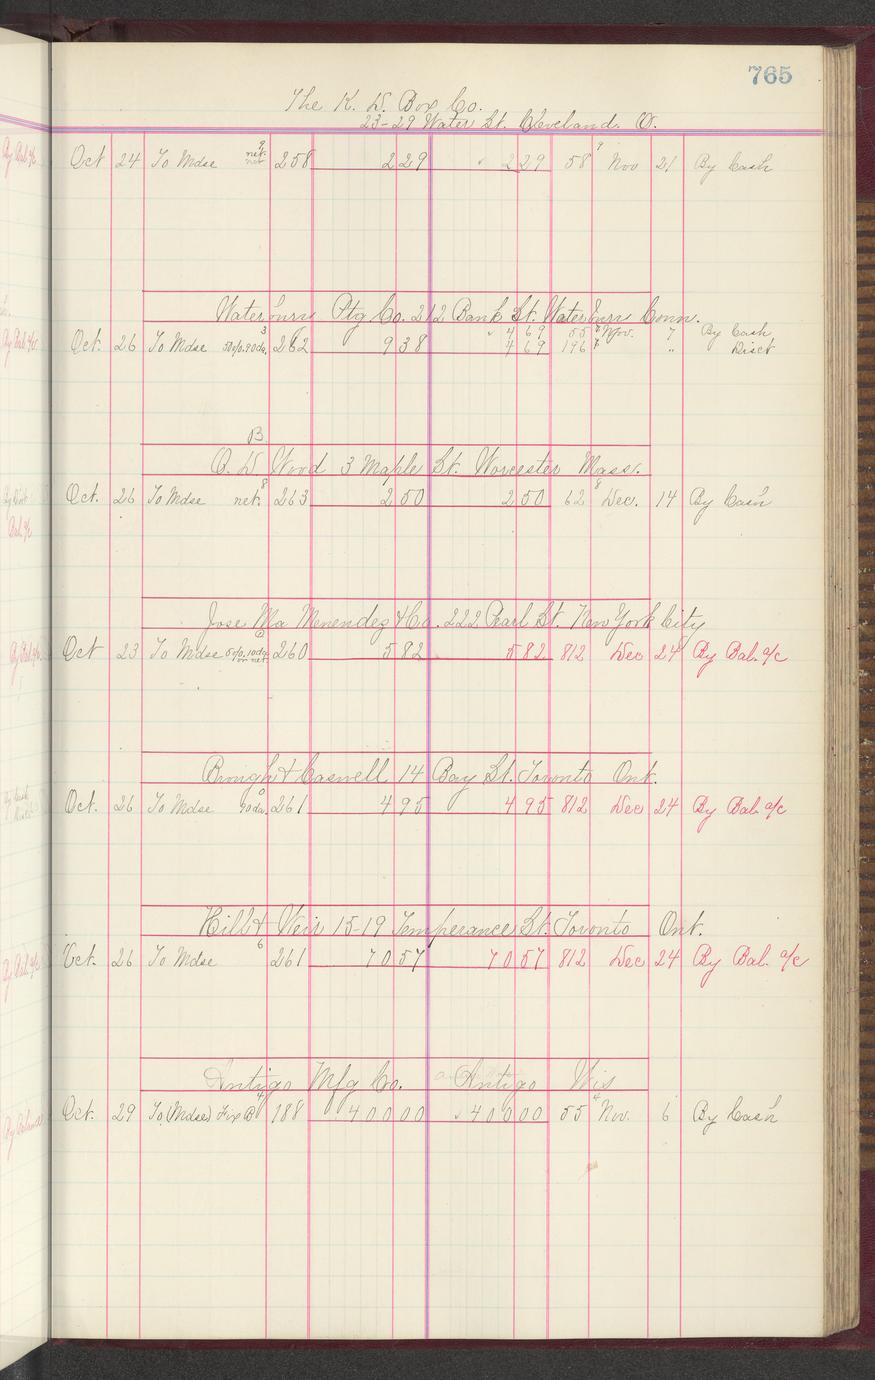 765
The K. D. Box Co.
23-29 Water St. Cleveland. O.
Oct 24 To Mdse 9 net. 258 2 29 ✓ 2 29 58 9 Nov 21 By Cash
Waterbury Ptg Co. 212 Bank St. Waterbury Conn.
✓ 4 69 55 7 Nov. 7 By Cash
Oct. 26 To Mdse 3 50%.90da. 262 9 38 4 69 196 7 " Disct
B.
O. D. Wood 3 Maple St. Worcester Mass.
Oct. 26 To Mdse net. 8 263 2 50 2 50 62 8 Dec. 14 By Cash
Jose Ma Menendez & Co. 222 Pearl St. New York City
Oct 23 To Mdse 5%.10da. or net. 260 5 82 5 82 812 Dec 24 By Bal. a/c
Brough & Caswell 14 Bay St. Toronto Ont.
Oct. 26 To Mdse 90da. 261 4 95 4 95 812 Dec 24 By Bal. a/c
Hill & Weir 15-19 Temperance St. Toronto Ont.
Oct. 26 To Mdse 6 261 70 57 70 57 812 Dec 24 By Bal. a/c
Antigo Mfg Co. Antigo Wis
Oct. 29 To (Mdse) Fix B 4 188 400 00 ✓ 400 00 55 4 Nov. 6 By Cash